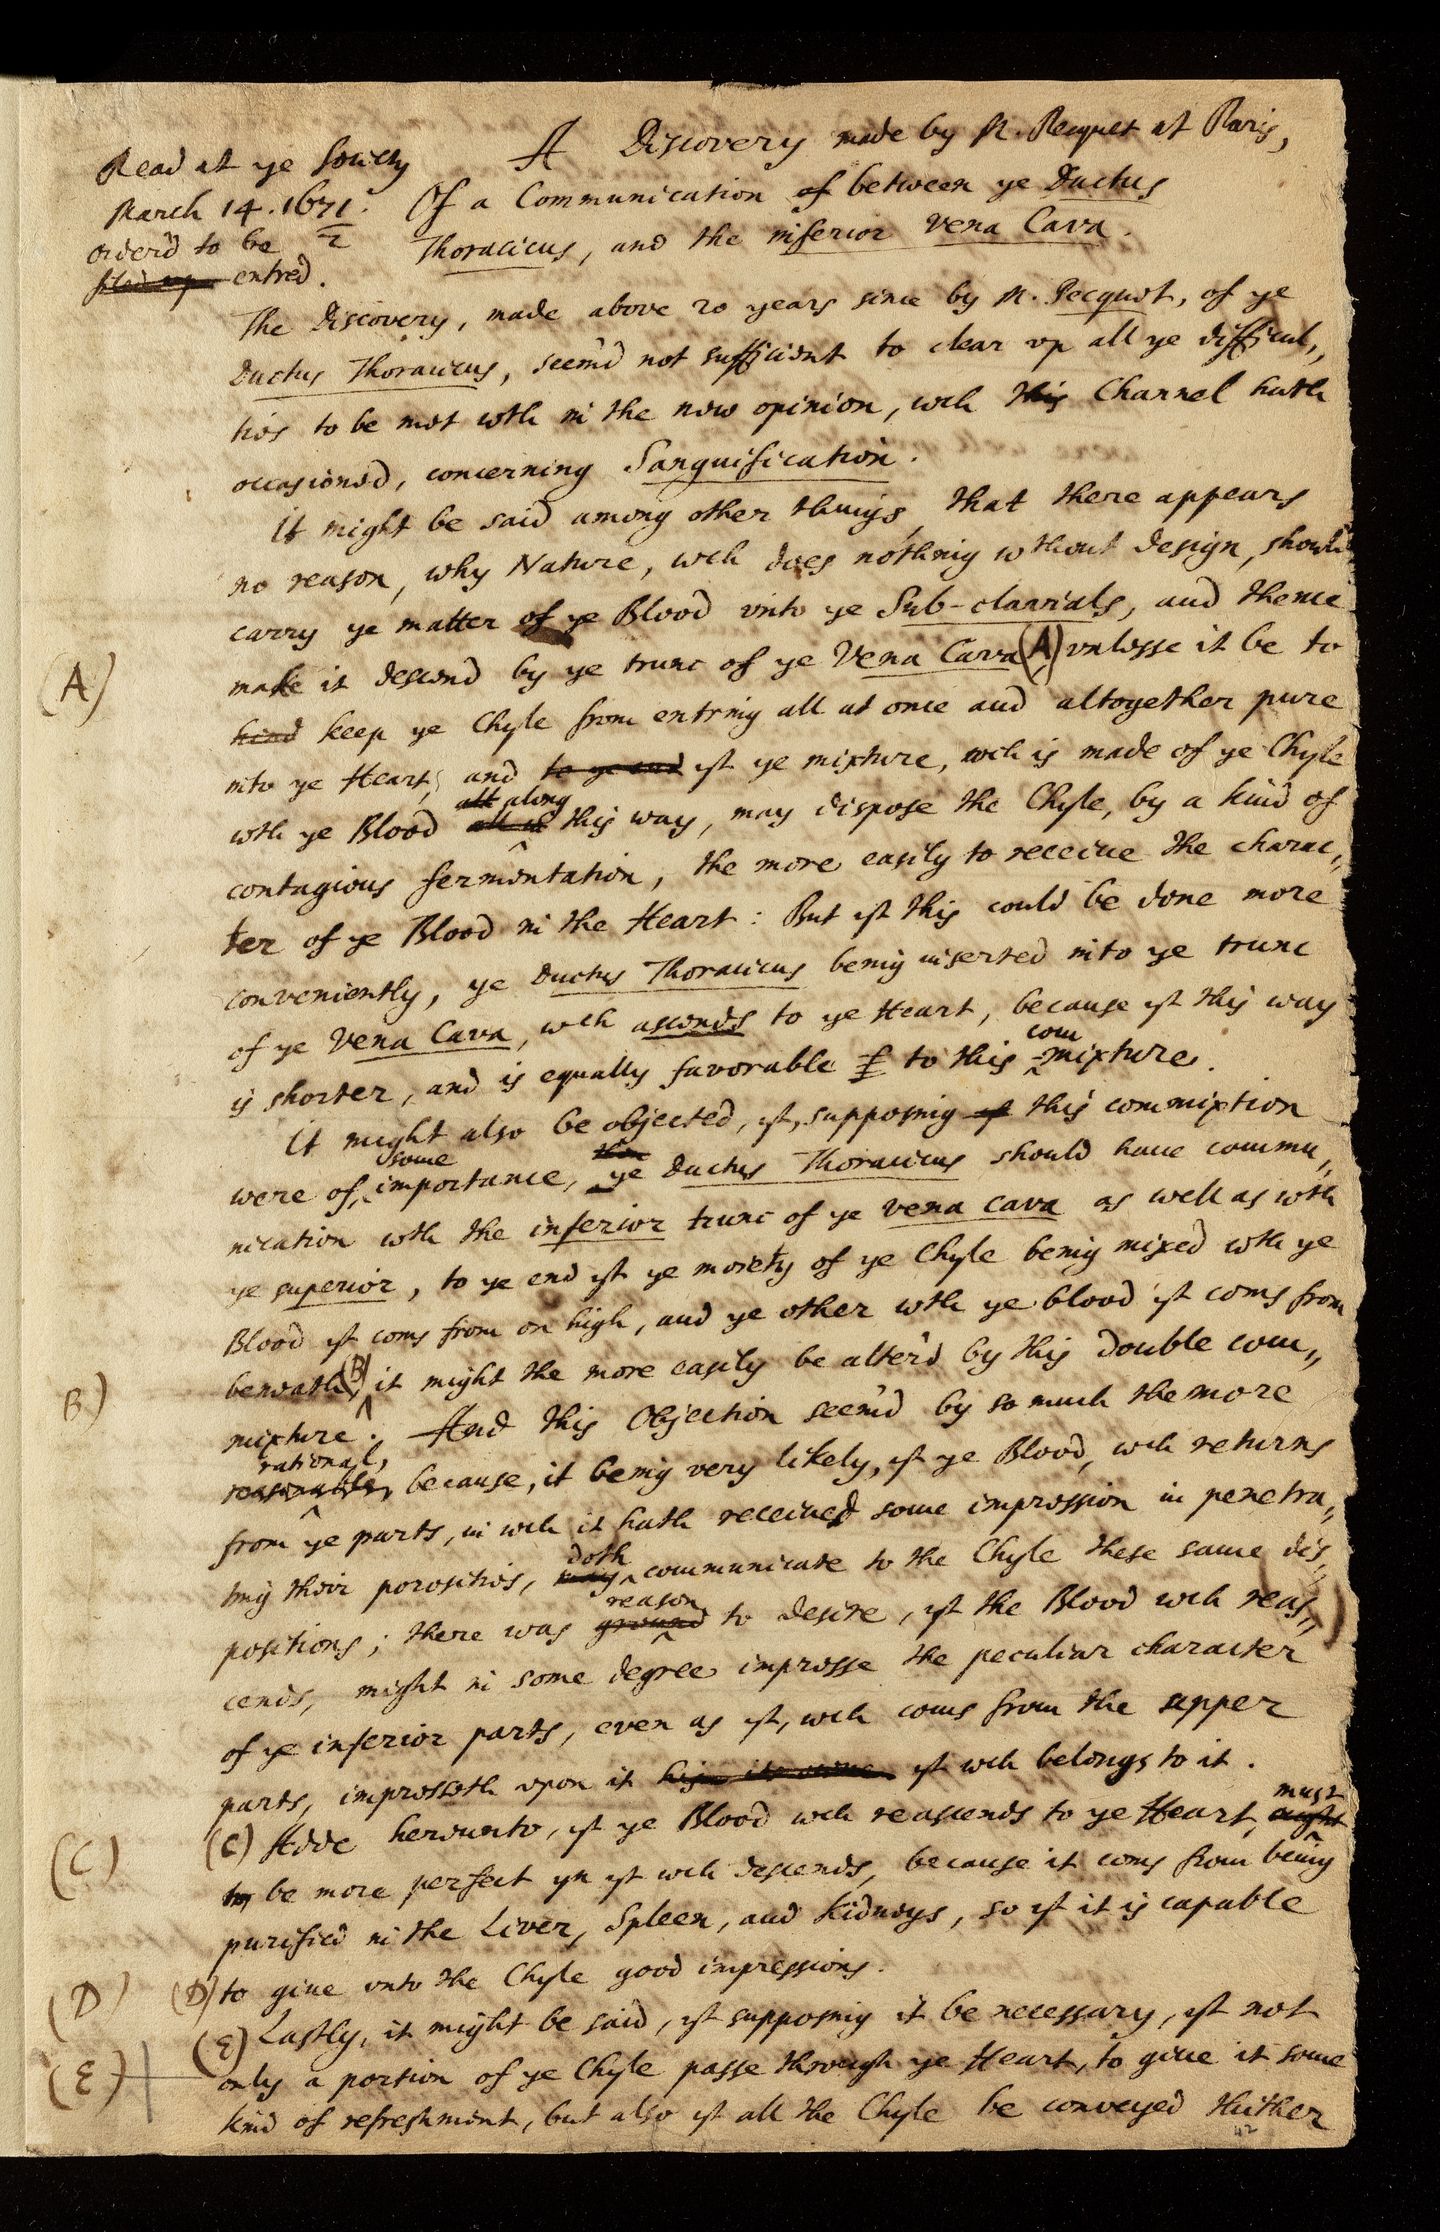 A Discovery made by M. Pecquet at Paris,
Of a Communication of between ye Ductus
Thoracicus, and the inferior Vena Cava.
Read at ye Society
March 14. 1671/2
order'd to be
filed up entred.
The Discovery, made above 20 years since by M. Pecquet, of ye
Ductus Thoracicus, seem'd not sufficient to clear vp all ye difficul,,
ties to be met wth in the new opinion, wch this Channel hath
occasioned, concerning Sanguification.
It might be said among other things, that there appears
no reason, why Nature, wch does nothing without design, should
carry ye matter of ye Blood vnto ye Sub-clavials, and thence
(A)
make it descend by ye trunc of ye Vena Cava (A) vnlesse it be to
keep ye Chyle from entring all at once and altogether pure
into ye Heart, and to ye end yt ye mixture, wch is made of ye Chyle
all along
wth ye Blood this way, may dispose the Chyle, by a kind of
contagious fermentation, the more easily to receive the charac,,
ter of ye Blood in the Heart: But yt this could be done more
conveniently, ye Ductus Thoracicus being inserted into ye trunc
of ye Vena Cava, wch ascends to ye Heart, because yt this way
com
is shorter, and is equally favorable to this -mixture.
It might also be objected, yt, supposing yt this commixtion
some then
were of importance, ye Ductus Thoracicus should have commu,,
nication wth the inferior trunc of ye vena cava as well as wth
ye superior, to ye end yt ye moiety of ye Chyle being mixed wth ye
Blood yt coms from on high, and ye other wth ye blood yt coms from
beneath, (B) it might the more easily be alter'd by this double com,,
B)
mixture. And this Objection seem'd by so much the more
rational,
reasonable, because, it being very likely, yt ye Blood, wch returns
from ye parts, in wch it hath received some impression in penetra,,
doth
ting their porosities, may communicate to the Chyle these same dis,,
reason
positions; there was ground to desire, yt the Blood wch reas,,
cends, might in some degree impresse the peculiar character
of ye inferior parts, even as yt, wch coms from the upper
parts, impresseth vpon it yt wch belongs to it.
must
(C)
(C) Adde hereunto, yt ye Blood wch reascends to ye Heart, ought
to be more perfect yn yt wch descends, because it coms from being
purified in the Liver, Spleen, and Kidneys, so yt it is capable
(D)
(D) to give vnto the Chyle good impressions.
(E) Lastly, it might be said, yt supposing it be necessary, yt not
(E)
only a portion of ye Chyle passe through ye Heart, to give it some
kind of refreshment, but also yt all the Chyle be conveyed thither
42